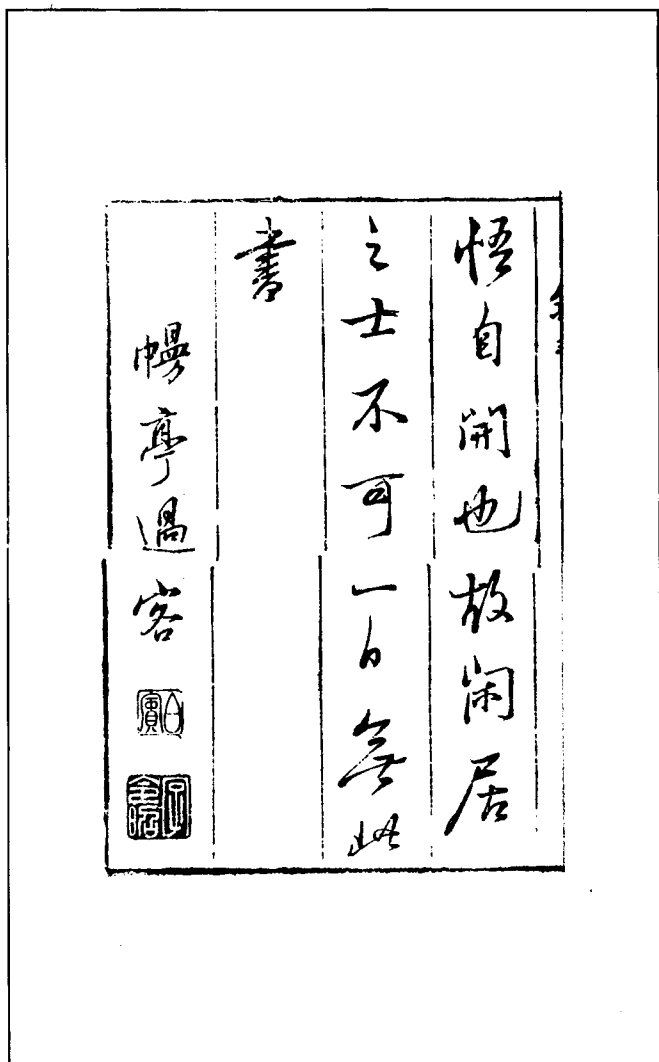 悟自開也故閑居
之士不可一日無此
書
幔亭過客
白賓